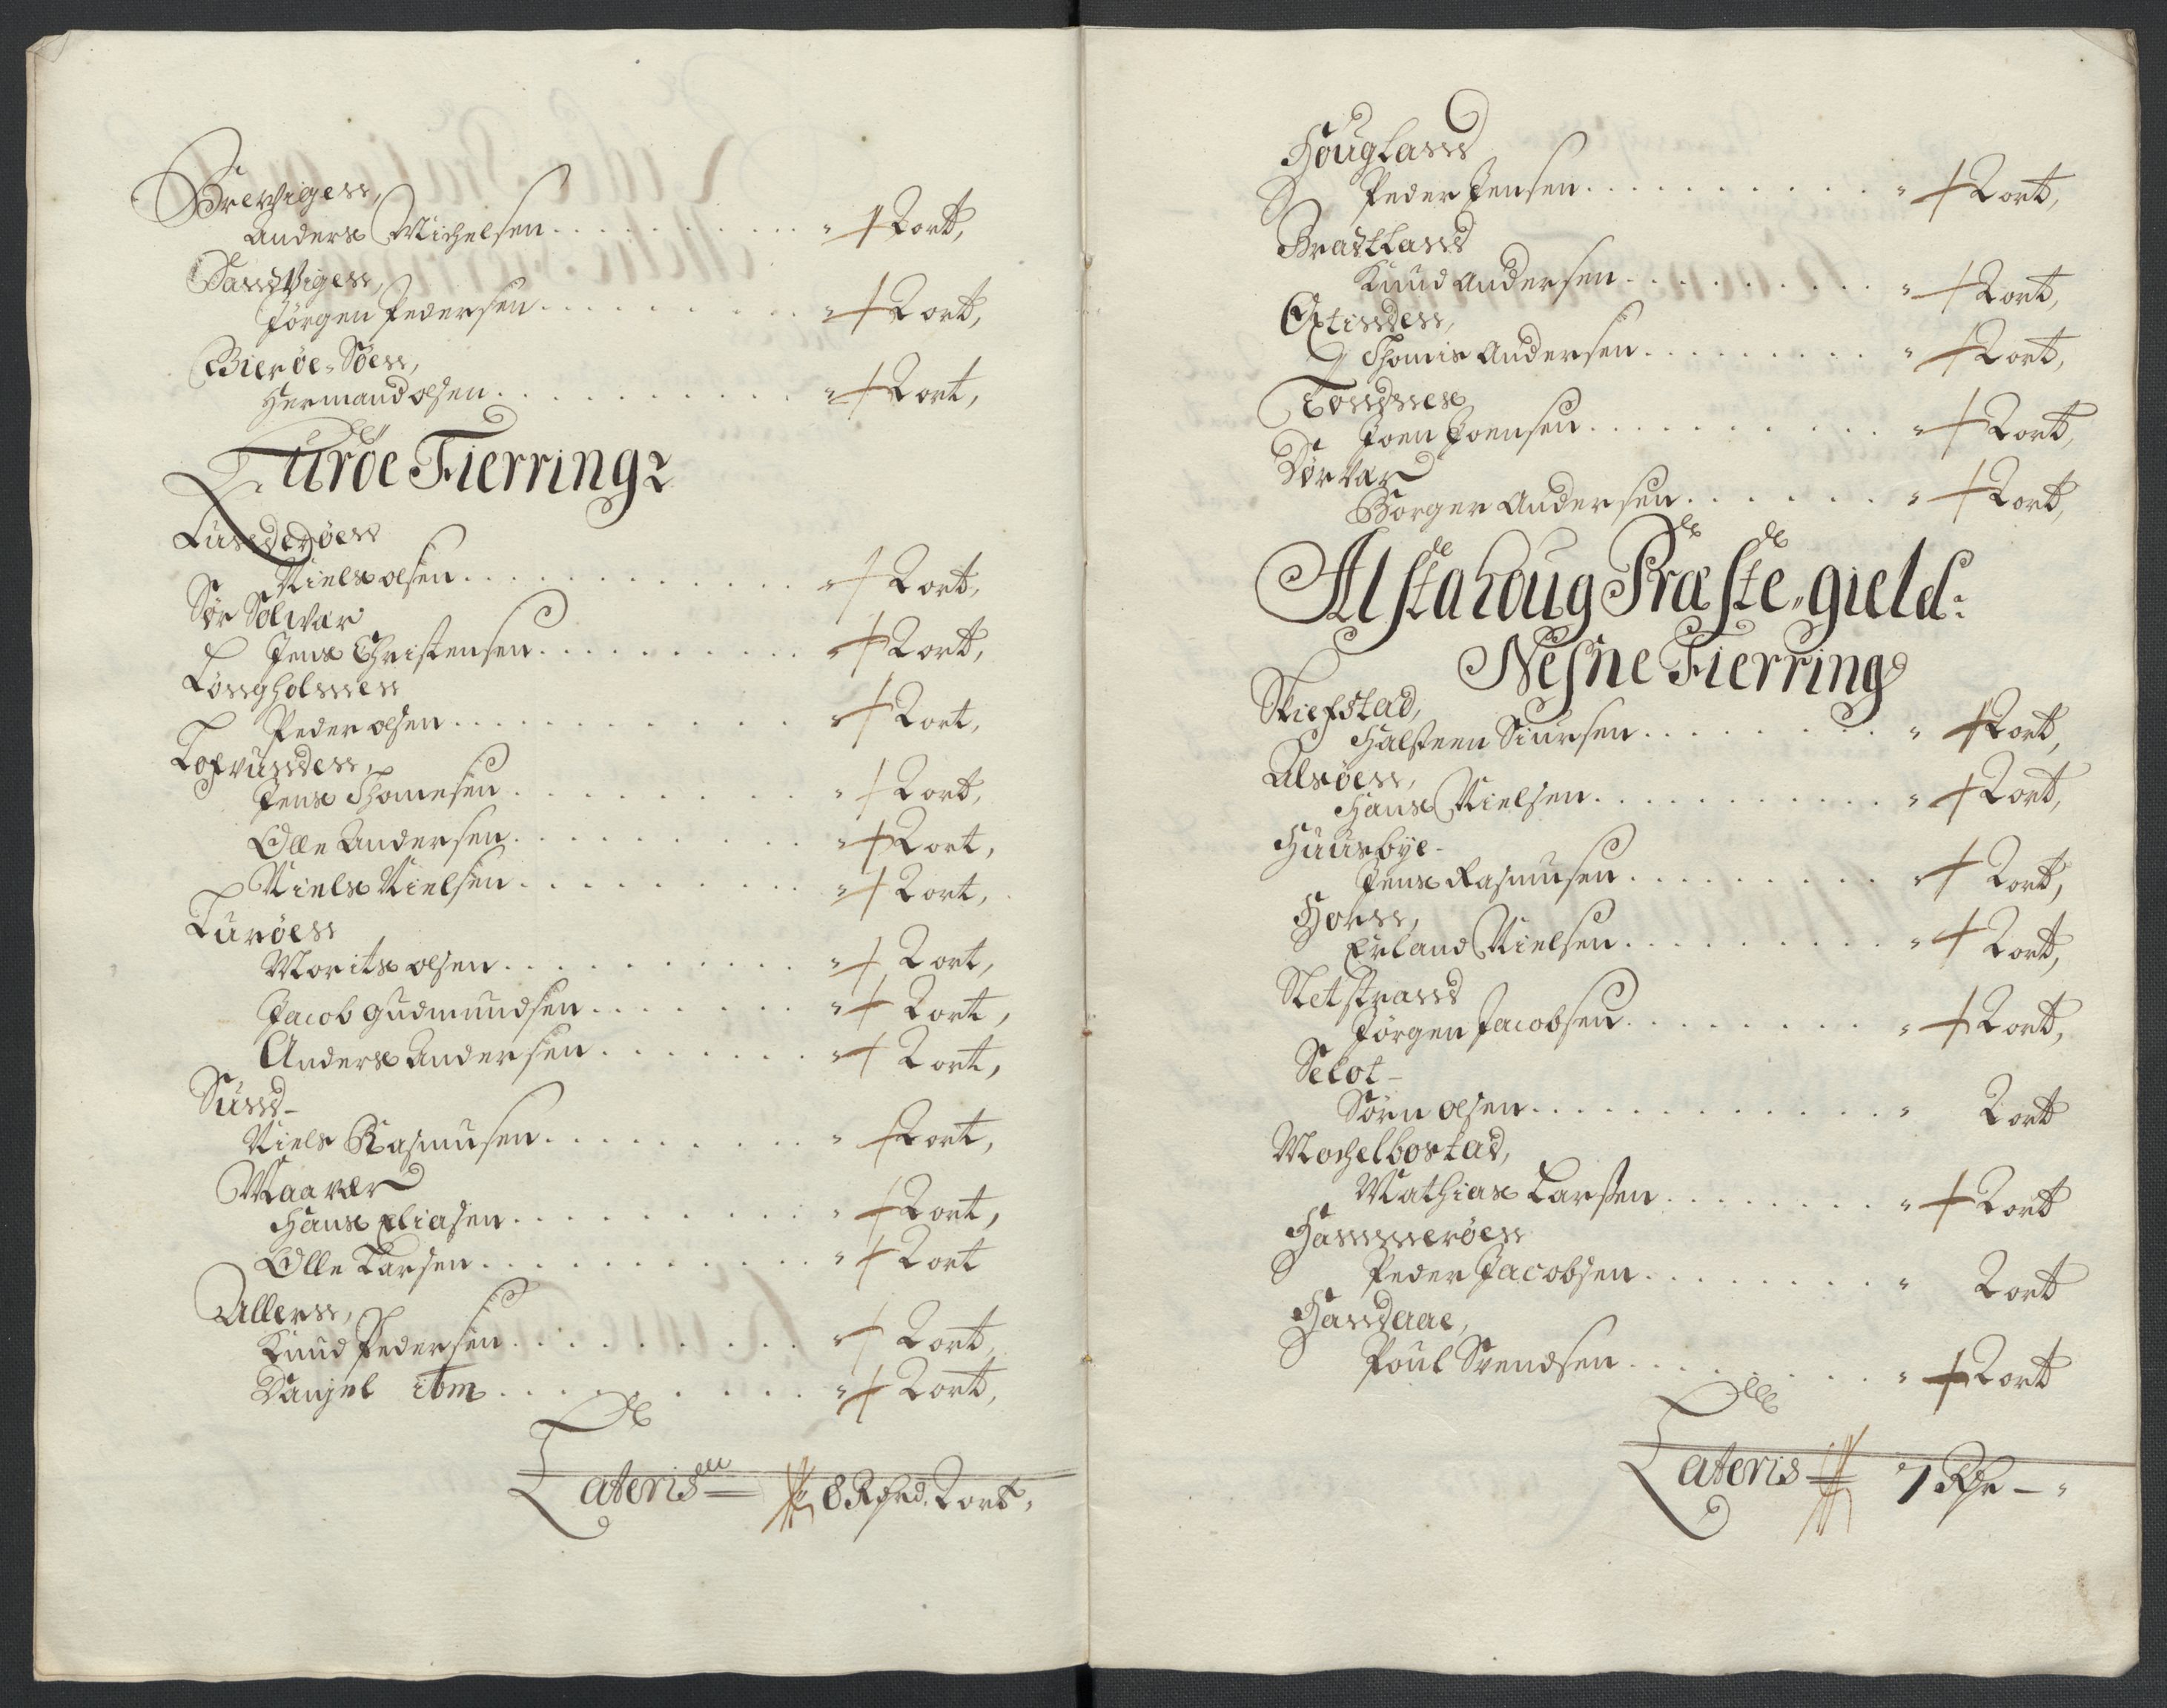 Brevigen,
Anders Michelsen . . . . . . . . . . " 2 ort,
Sandvigen,
Jörgen Pedersen . . . . . . . . . . " 2 ort,
Bierøe-Søen,
Hermand olsen . . . . . . . . . . " 2 ort,
Lurøe Fierring
Lunderøen
Niels olsen . . . . . . . . . . " 2 ort,
Sør Solvær
Jens Christensen . . . . . . . . . . " 2 ort,
Longholmen
Peder olsen . . . . . . . . . . " 2 ort,
Lofvunden,
Jens Thomesen . . . . . . . . . . " 2 ort,
Olle Andersen . . . . . . . . . . " 2 ort,
Niels Nielsen . . . . . . . . . . " 2 ort,
Lurøen
Morits olsen . . . . . . . . . . " 2 ort,
Jacob Gudmundsen . . . . . . . " 2 ort,
Anders Andersen . . . . . . . " 2 ort,
Sund-
Niels Rasmusen . . . . . . . . . . " 2 ort,
Maavær
Hans Eliasen . . . . . . . . . . " 2 ort,
Olle Larsen . . . . . . . . . . " 2 ort
Alleren,
Knud Pedersen . . . . . . . . . . " 2 ort,
Danjel ibm . . . . . . . . . . " 2 ort,
Lateris 8 Rdr. 2 ort,
Hougland
Peder Jensen . . . . . . . . . . " 2 ort,
Bratland
Knud Andersen . . . . . . . . . . " 2 ort,
Qvinden,
Thomis Andersen . . . . . . . . . " 2 ort,
Tonnes
Joen Joensen . . . . . . . . . . " 2 ort,
Dørvær
Borger Andersen . . . . . . " 2 ort,
Alstahoug Præste-gield:
Nesne Fierring
Skiefstad,
Halsteen Siursen . . . . . . . . . " 2 ort,
Alsøen,
Hans Nielsen . . . . . . . . . . " 2 ort,
Huusbye-
Jens Rasmusen . . . . . . . . . " 2 ort,
Horn,
Erland Nielsen . . . . . . . . . " 2 ort,
Sletstrand
Jörgen Jacobsen . . . . . . . . " 2 ort,
Selot-
Sörn olsen . . . . . . . . . . . . " 2 ort
Mochelbostad,
Mathias Larsen . . . . . . . " 2 ort
Hammerøen
Peder Jacobsen . . . . . . . . " 2 ort
Handaae,
Poul Svendsen . . . . . . . . " 2 ort
Lateris 7 Rdr - "